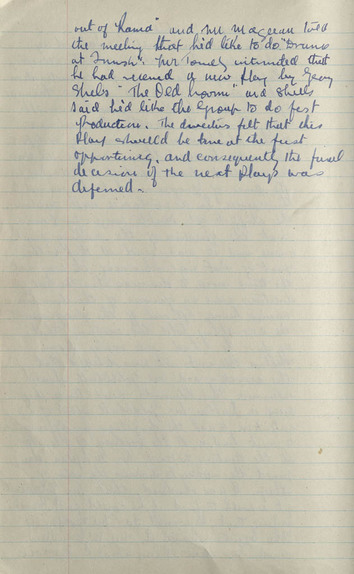 out of hand" and Mr Magean told
the meeting that he'd like to do "Drums
at Inish". Mr Tomely intimated that
he had received a new play by Geory
Shiels "The Old Broom" and Shiels
said he'd like the Group to do first
production. The directors felt that this
play should be done at the first
opportunity, and consequently the final
decision of the next plays was
deferred -